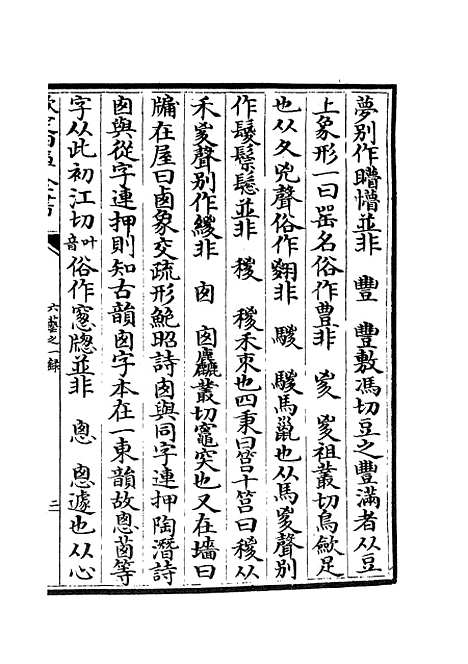 夢别作矒懵並非　豐　豐敷馮切豆之豐滿者从豆
上象形一曰器名俗作豊非　㚇　㚇祖叢切鳥歛足
也从夊兇聲俗作翪非　騣　騣馬鬛也从馬㚇聲别
作鬉鬃鬆並非　稯　稯禾束也四秉曰筥十筥曰稯从
禾㚇聲别作緵非　囪　囪麤叢切竈突也又在墻曰
牖在屋曰囱象交疏形鮑昭詩囪與同字連押陶潛詩
囪與從字連押則知古韻囪字本在一東韻故悤蔥等
字从此初江切叶音俗作窻牎並非　悤　悤遽也从心
六藝之一録